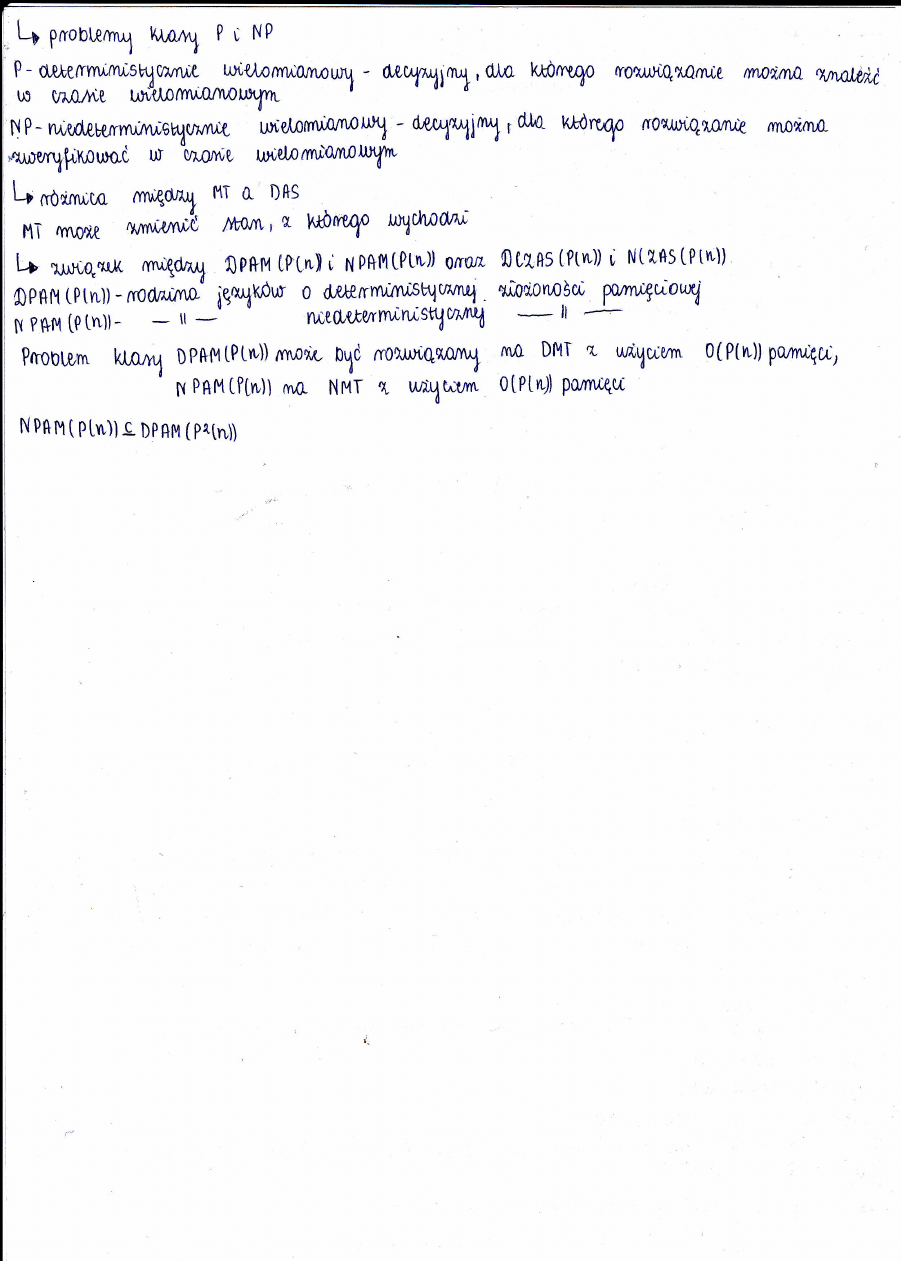 ↳ problemy klasy P i NP
P - deterministycznie wielomianowy - decyzyjny, dla którego rozwiązanie można znaleźć
w czasie wielomianowym
NP - niedeterministycznie wielomianowy - decyzyjny, dla którego rozwiązanie można
zweryfikować w czasie wielomianowym
↳ różnica między MT a DAS
MT może zmienić stan, z którego wychodzi
↳ związek między DPAM(P(n) i NPAM(P(n)) oraz DCZAS(P(n)) i NCZAS(P(n))
DPAM(P(n)) - rodzina języków o deterministycznej złożoności pamięciowej
NPAM(P(n)) - — 〃 — niedeterministycznej — 〃 —
Problem klasy DPAM(P(n)) może być rozwiązany na DMT z użyciem O(P(n)) pamięci,
NPAM(P(n)) na NMT z użyciem O(P(n)) pamięci
NPAM(P(n)) ⊆ DPAM(P²(n))